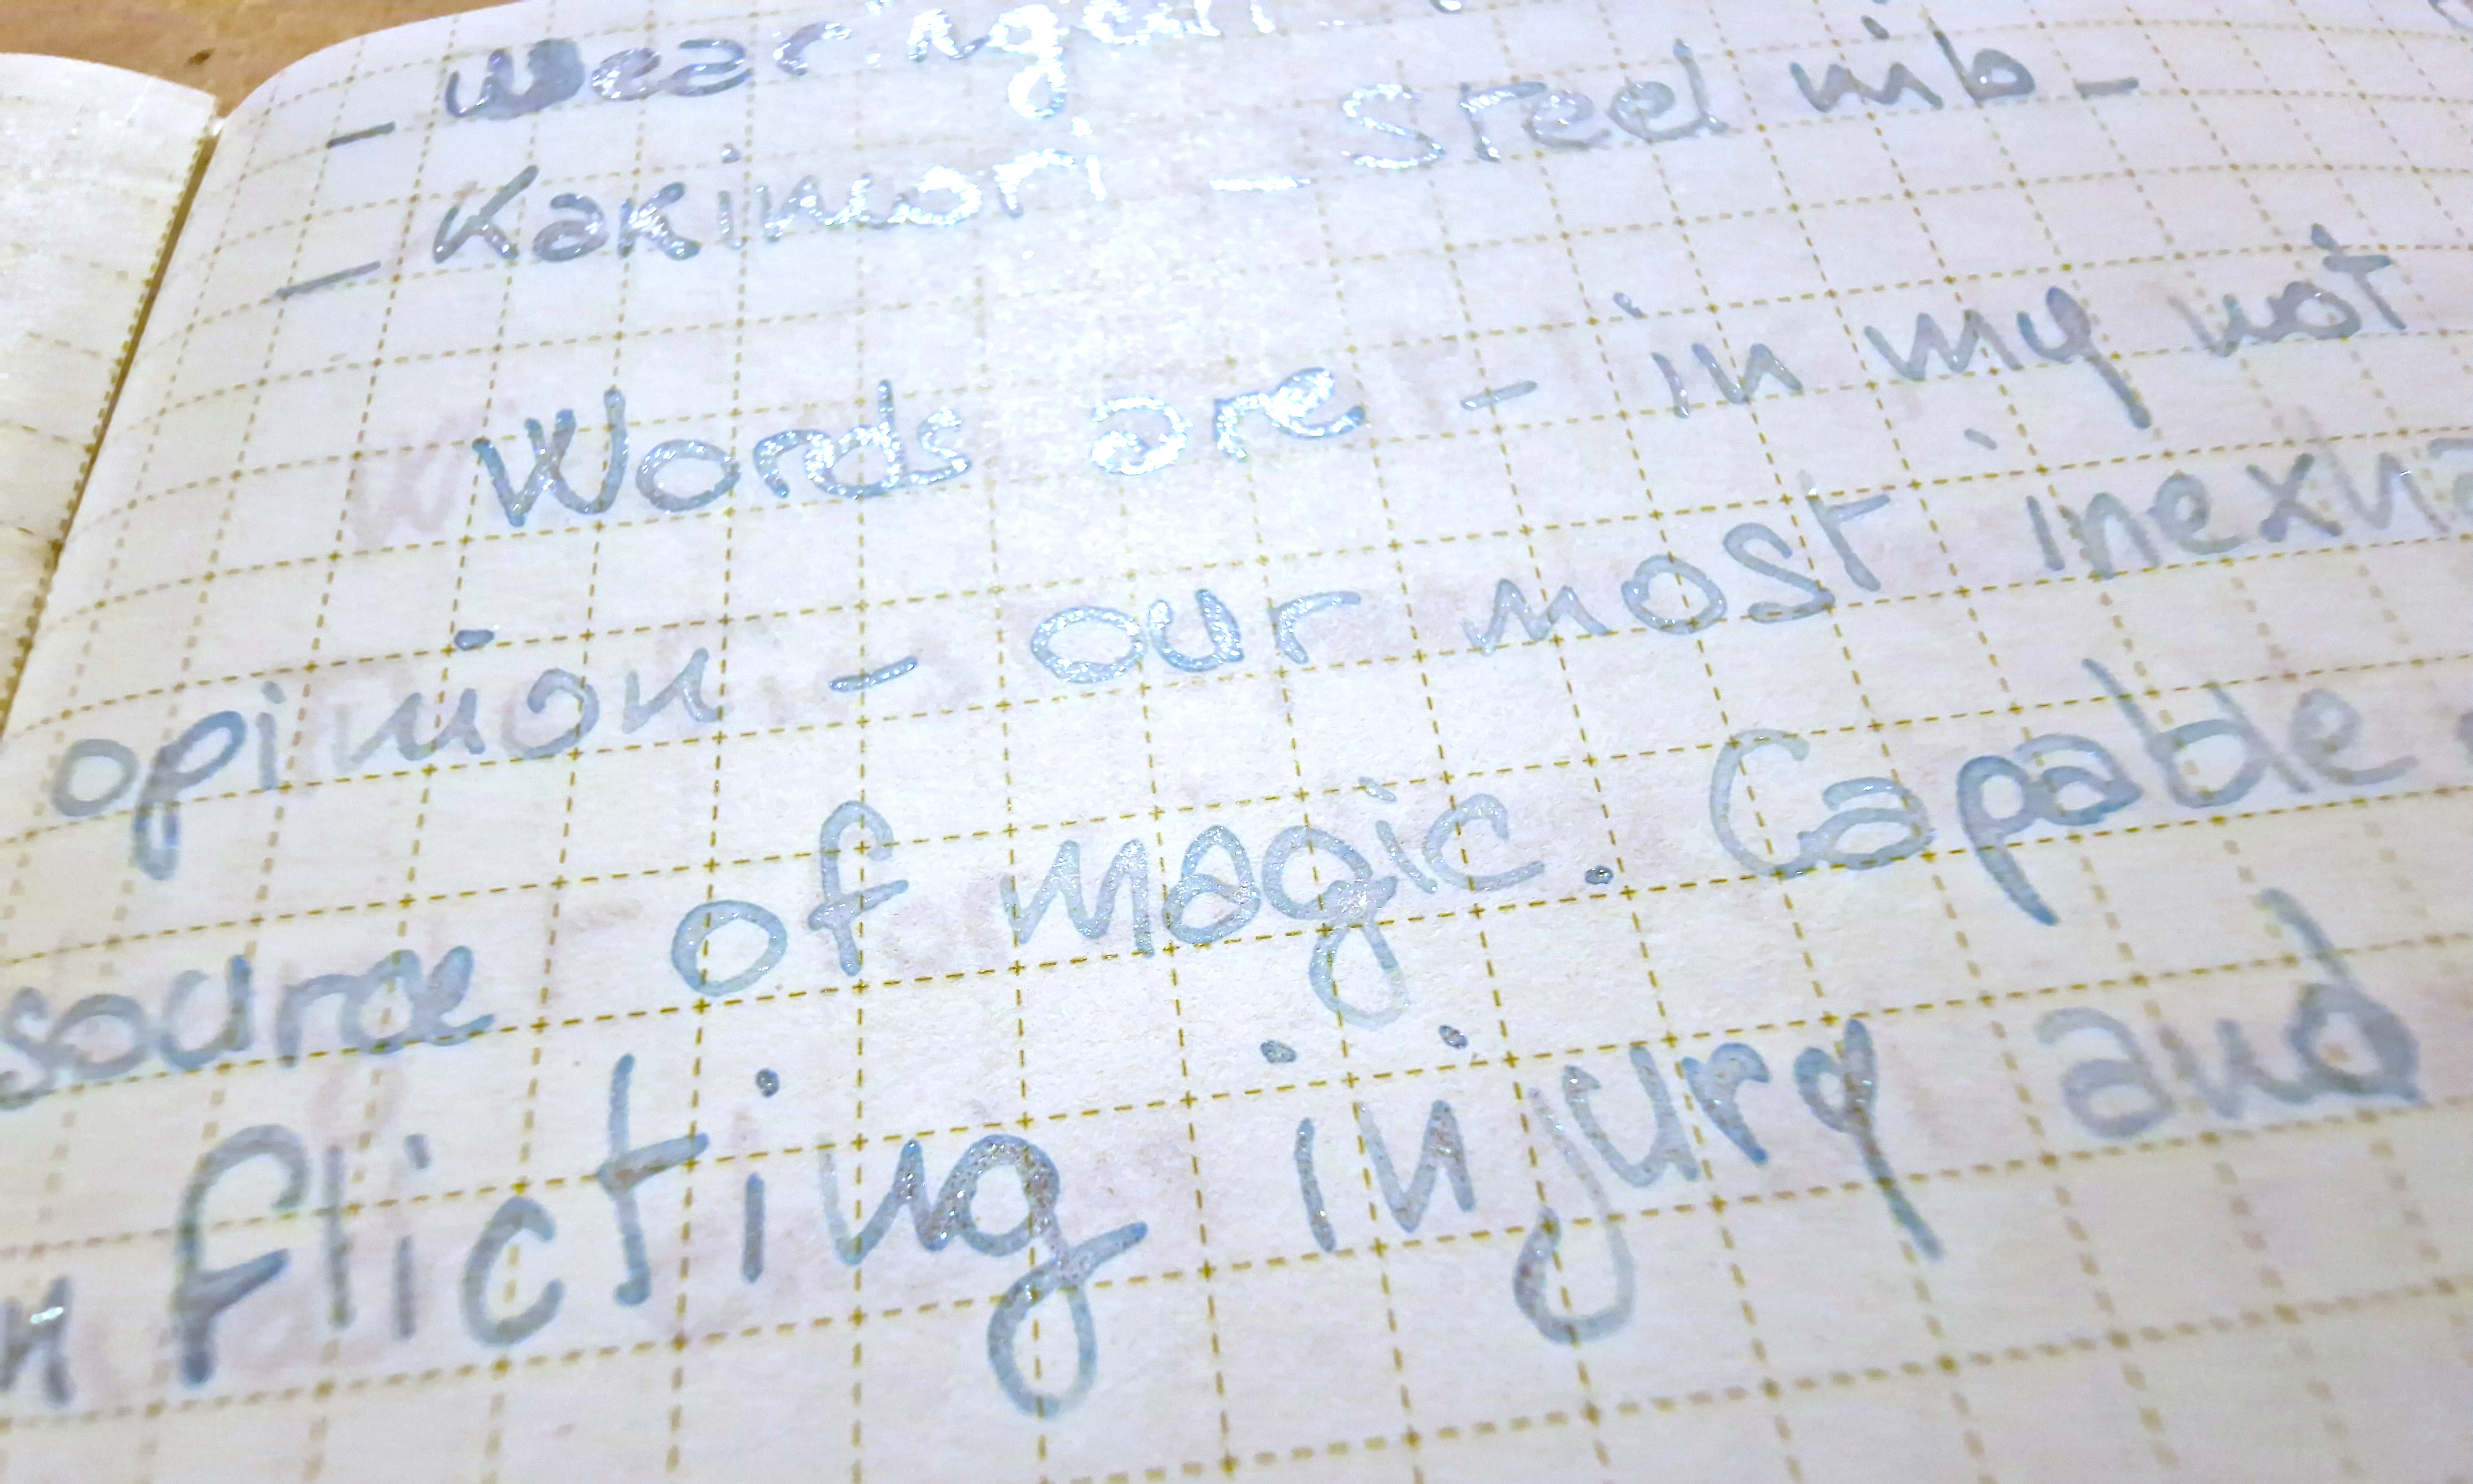 - Wearingeul
- Kakimori - Steel nib -
Words are - in my not
opinion - our most inexha
source of magic. Capable
nflicting injury and